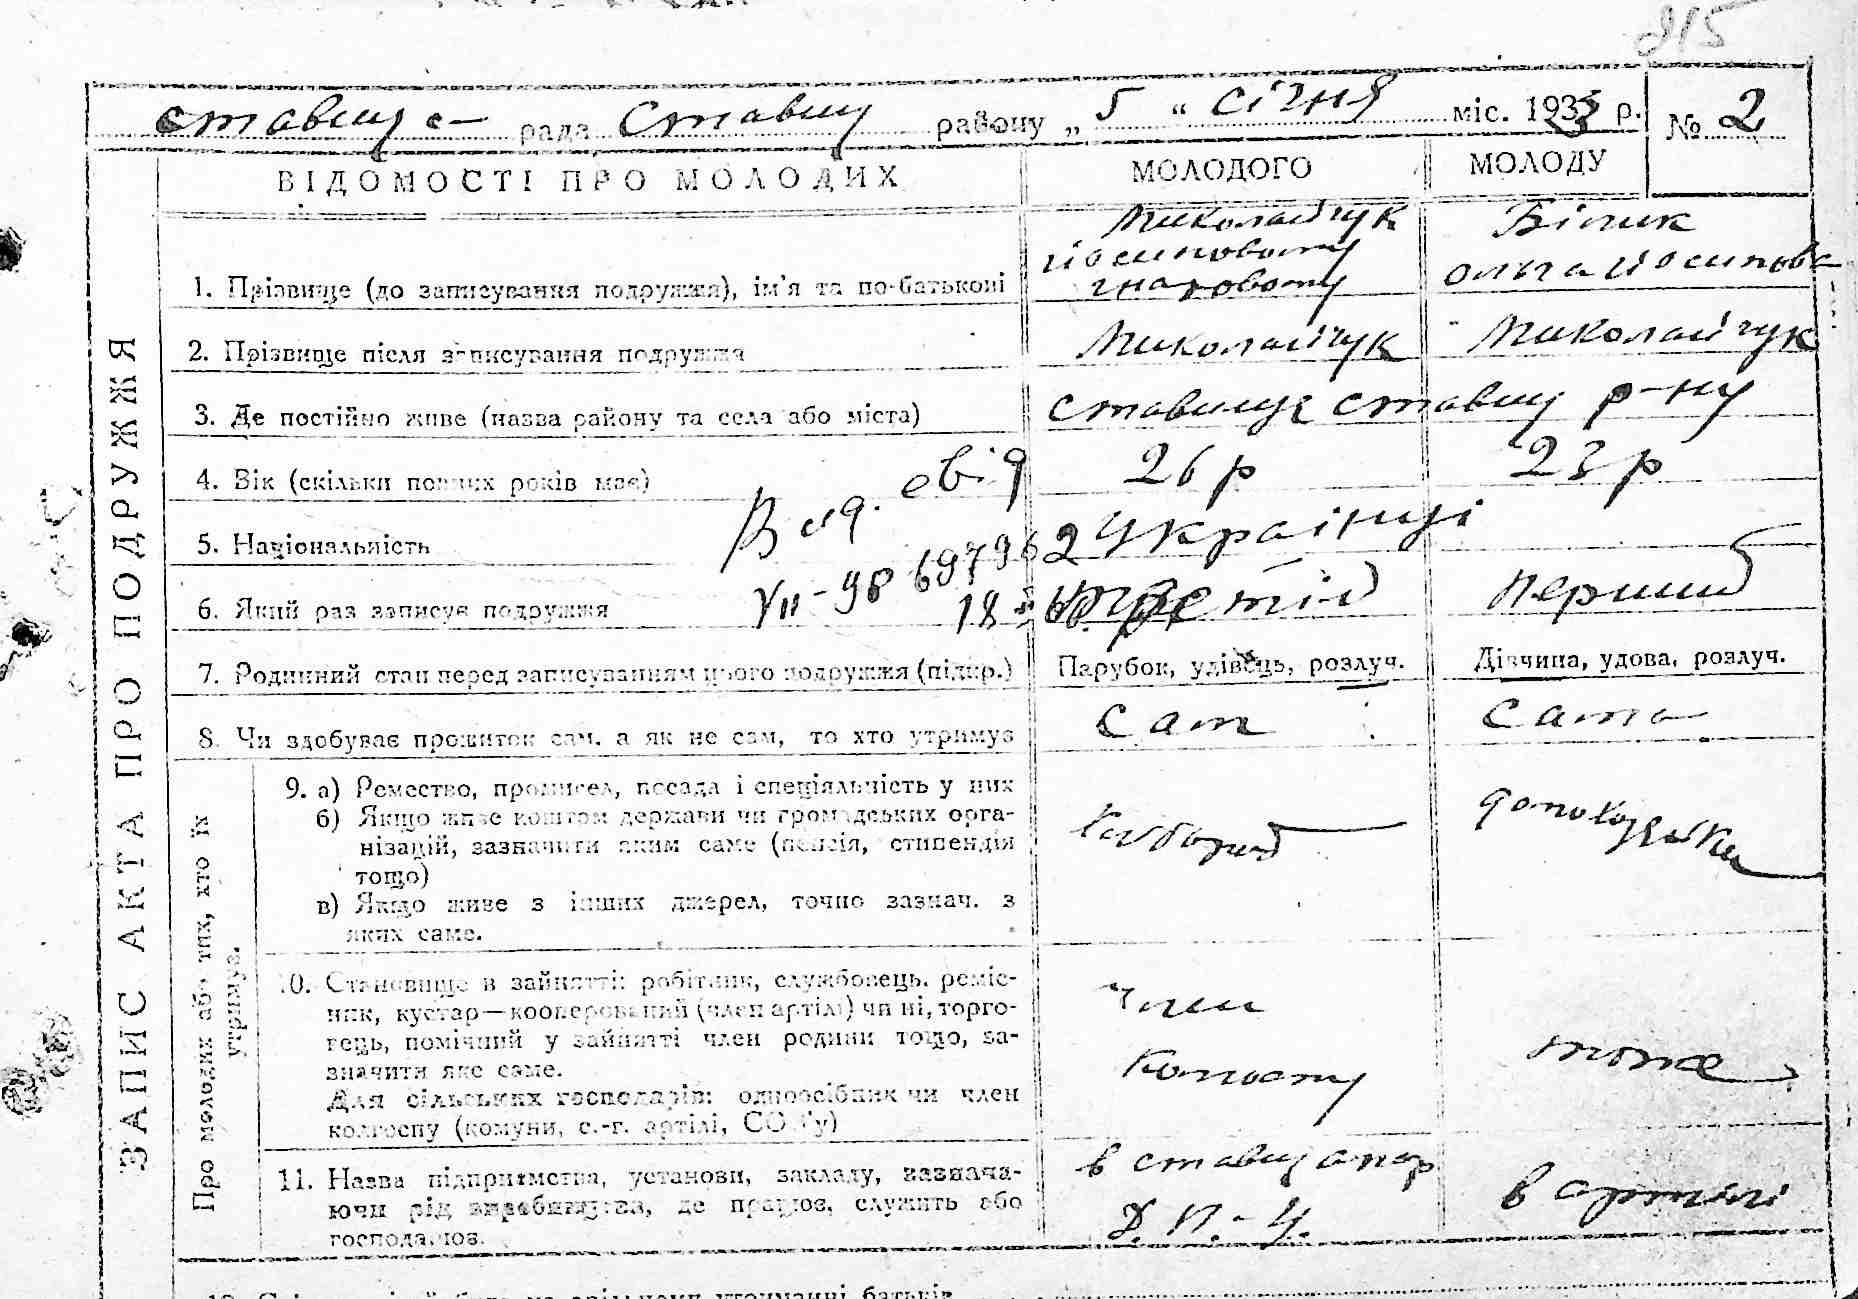 215
ставище рада Ставищ району „ 5 “ січня міс. 1933 р. № 2
ВІДОМОСТІ ПРО МОЛОДИХ МОЛОДОГО МОЛОДУ
ЗАПИС АКТА ПРО ПОДРУЖЖЯ
Миколайчук Білик
Йосиповому Ольга Йосипова
1. Прізвище (до записування подружжя), ім'я та по-батькові
2. Прізвище після записування подружжя Миколайчук Миколайчук
3. Де постійно живе (назва району та села або міста) ставище ставищ р-ну
4. Вік (скільки повних років має) 26 р 23 р
Вид. свід
5. Національність українці
6. Який раз записує подружжя третій перший
7. Родинний стан перед записуванням цього подружжя (підкр.) Парубок, удівець, розлуч. Дівчина, удова, розлуч.
8. Чи здобуває прожиток сам, а як не сам, то хто утримує сам сама
Про молодих або тих, хто їх утримує.
9. а) Ремество, промисел, посада і спеціяльність у них
б) Якщо живе коштом держави чи громадських орга-
нізацій, зазначити яким саме (пенсія, стипендія
тощо)
домохозяйка
в) Якщо живе з інших джерел, точно зазнач. з
яких саме.
10. Становище в зайнятті: робітник, службовець, реміс-
ник, кустар—кооперований (член артілі) чи ні, торго-
вець, помічний у зайнятті член родини тощо, за-
значити яке саме.
Для сільських господарів: одноосібник чи член
колгоспу (комуни, с.-г. артілі, СОЗ'у)
член
колгоспу
тоже
11. Назва підприємства, установи, закладу, зазнача-
ючи рід виробництва, де працює, служить або
господарює.
в ставищ
в артілі